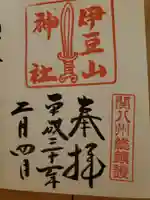 関八州総鎮護
奉拝
伊豆山
神社
平成三十年
二月四日